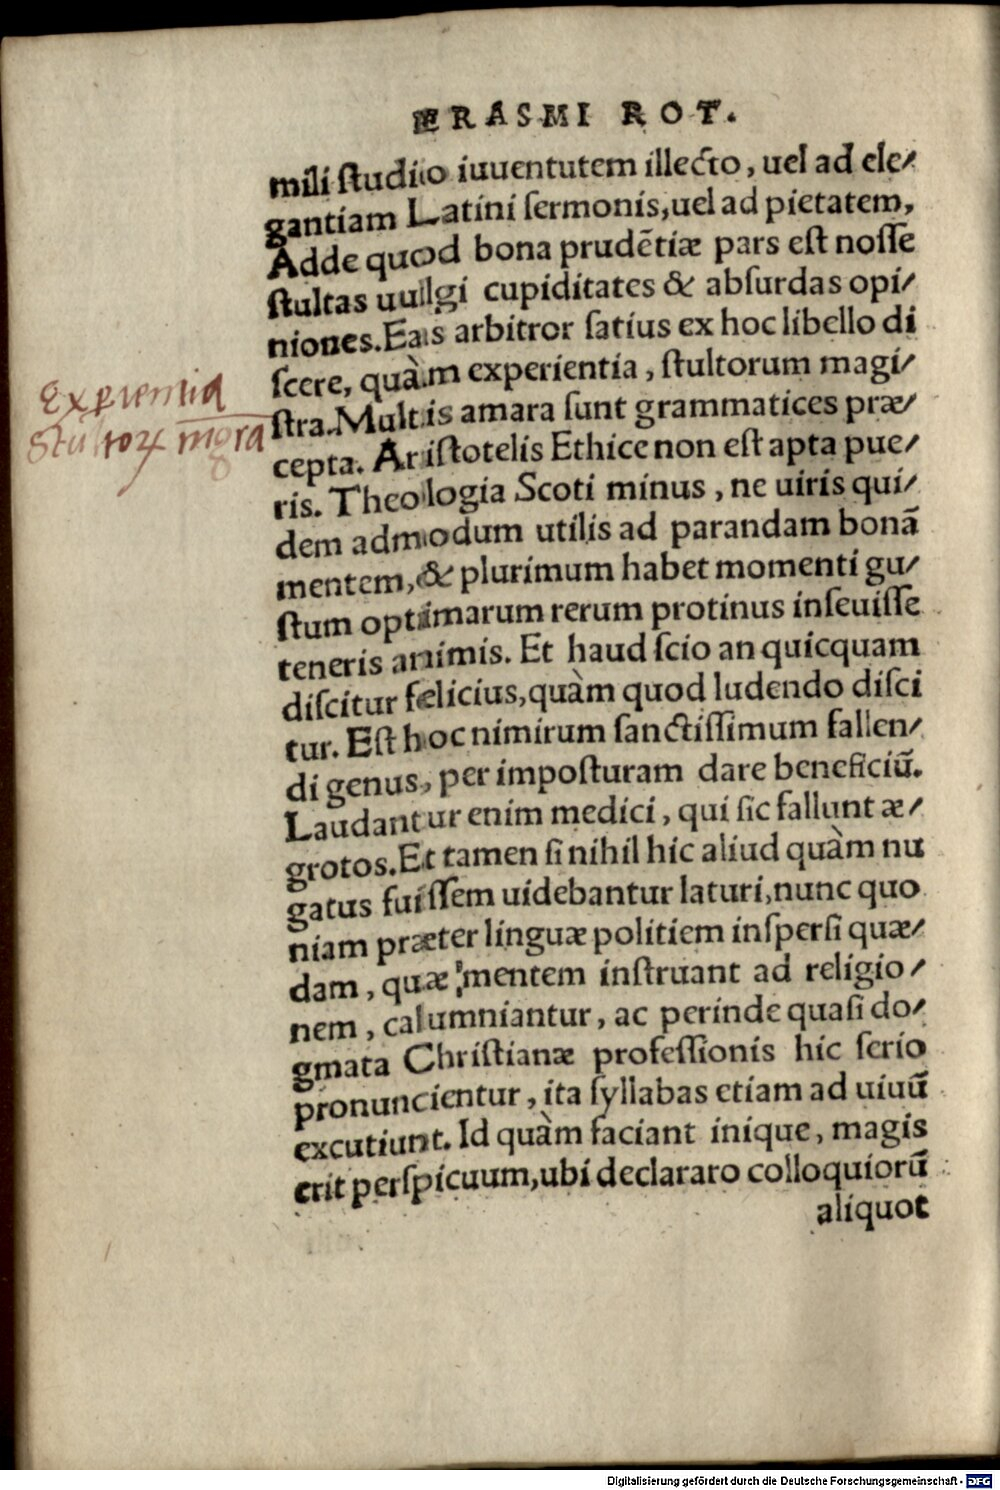 ERASMI ROT.
mili studio iuuentutem illecto, uel ad ele/
gantiam Latini sermonis, uel ad pietatem,
Adde quod bona prudẽtiæ pars est nosse
stultas uulgi cupiditates & absurdas opi/
niones. Eas arbitror satius ex hoc libello di
scere, quàm experientia, stultorum magi/
Experientia
stra. Multis amara sunt grammatices præ/
Stultoꝝ mgra
cepta. Aristotelis Ethice non est apta pue/
ris. Theologia Scoti minus, ne uiris qui/
dem admodum utilis ad parandam bonã
mentem, & plurimum habet momenti gu/
stum optimarum rerum protinus inseuisse
teneris animis. Et haud scio an quicquam
discitur felicius, quàm quod ludendo disci
tur. Est hoc nimirum sanctissimum fallen/
di genus, per imposturam dare beneficiũ.
Laudantur enim medici, qui sic fallunt æ/
grotos. Et tamen si nihil hic aliud quàm nu
gatus fuissem uidebantur laturi, nunc quo
niam præter linguæ politiem inspersi quæ/
dam, quæ mentem instruant ad religio/
nem, calumniantur, ac perinde quasi do/
gmata Christianæ professionis hic serio
pronuncientur, ita syllabas etiam ad uiuũ
excutiunt. Id quàm faciant inique, magis
erit perspicuum, ubi declararo colloquiorũ
aliquot
Digitalisierung gefördert durch die Deutsche Forschungsgemeinschaft - DFG